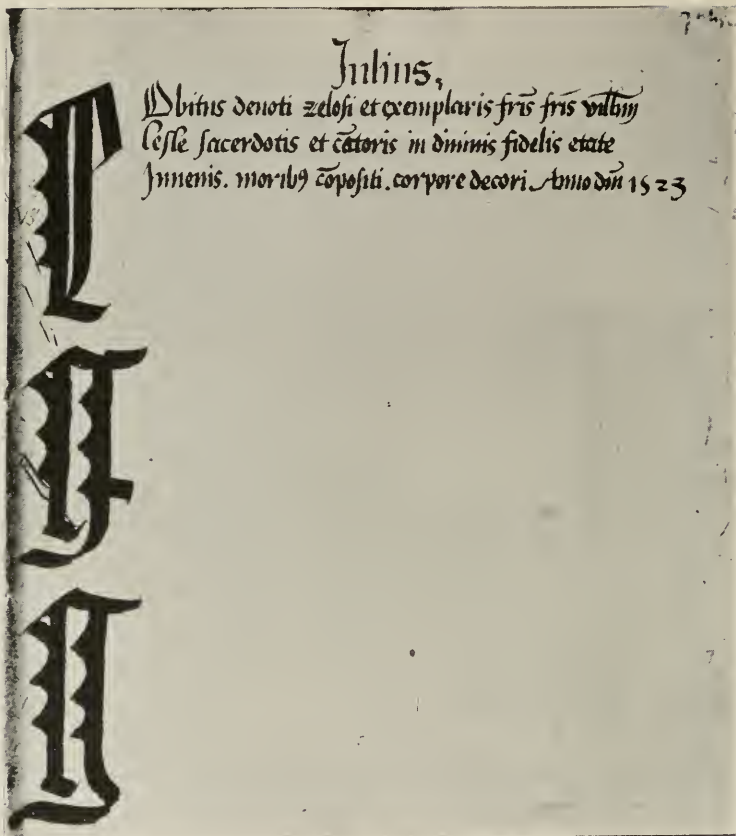 Julius,
Obitus deuoti zelosi et exemplaris fris̄ fris̄ willm̄j
lesle sacerdotis et cātoris in diuinis fidelis etate
Juuenis. moribꝯ cōpositi. corpore decori. Anno dnī 1523